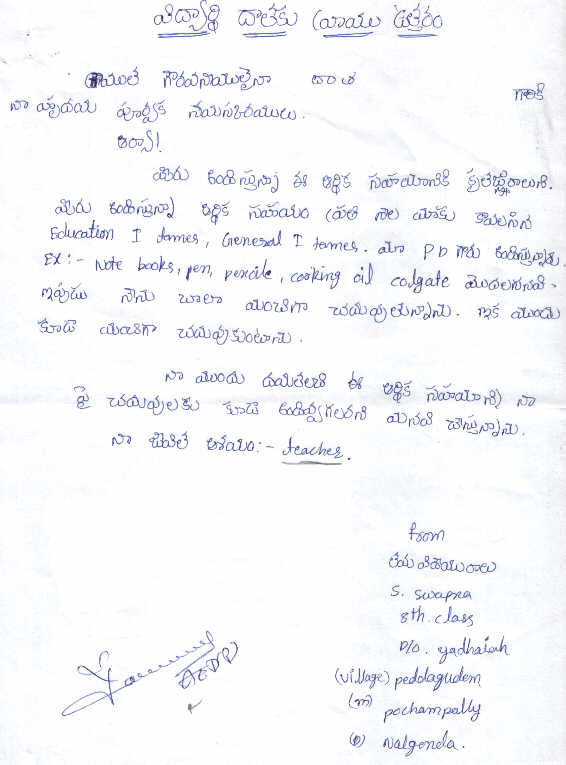 విద్యార్థి దాతకు వ్రాయు ఉత్తరం
గౌరవనీయులైన దాత గారికి
నా హృదయ పూర్వక నమస్కారములు.
ఆర్యా!
మీరు అందిస్తున్న ఈ ఆర్థిక సహాయానికి కృతజ్ఞురాలుని.
మీరు అందిస్తున్నా ఆర్థిక సహాయం ప్రతి నెల మాకు కావలసిన
Education I tames, General I tames. మా PD గారు అందిస్తున్నారు.
EX:- Note books, pen, pencile, cooking oil colgate మొదలగునవి.
ఇపుడు నేను చాలా మంచిగా చదువుతున్నాను. ఇక ముందు
కూడా మంచిగా చదువుకుంటాను.
నా ముందు ఈ ఆర్థిక సహాయాన్ని నా
పై చదువులకు కూడా మనవి చేస్తున్నాను.
నా జీవిత ఆశయం:- teacher.
from
S. swapna
8th. class
D/o. yadhaiah
(village) peddagudem
(m) pochampally
(D) Nalgonda.